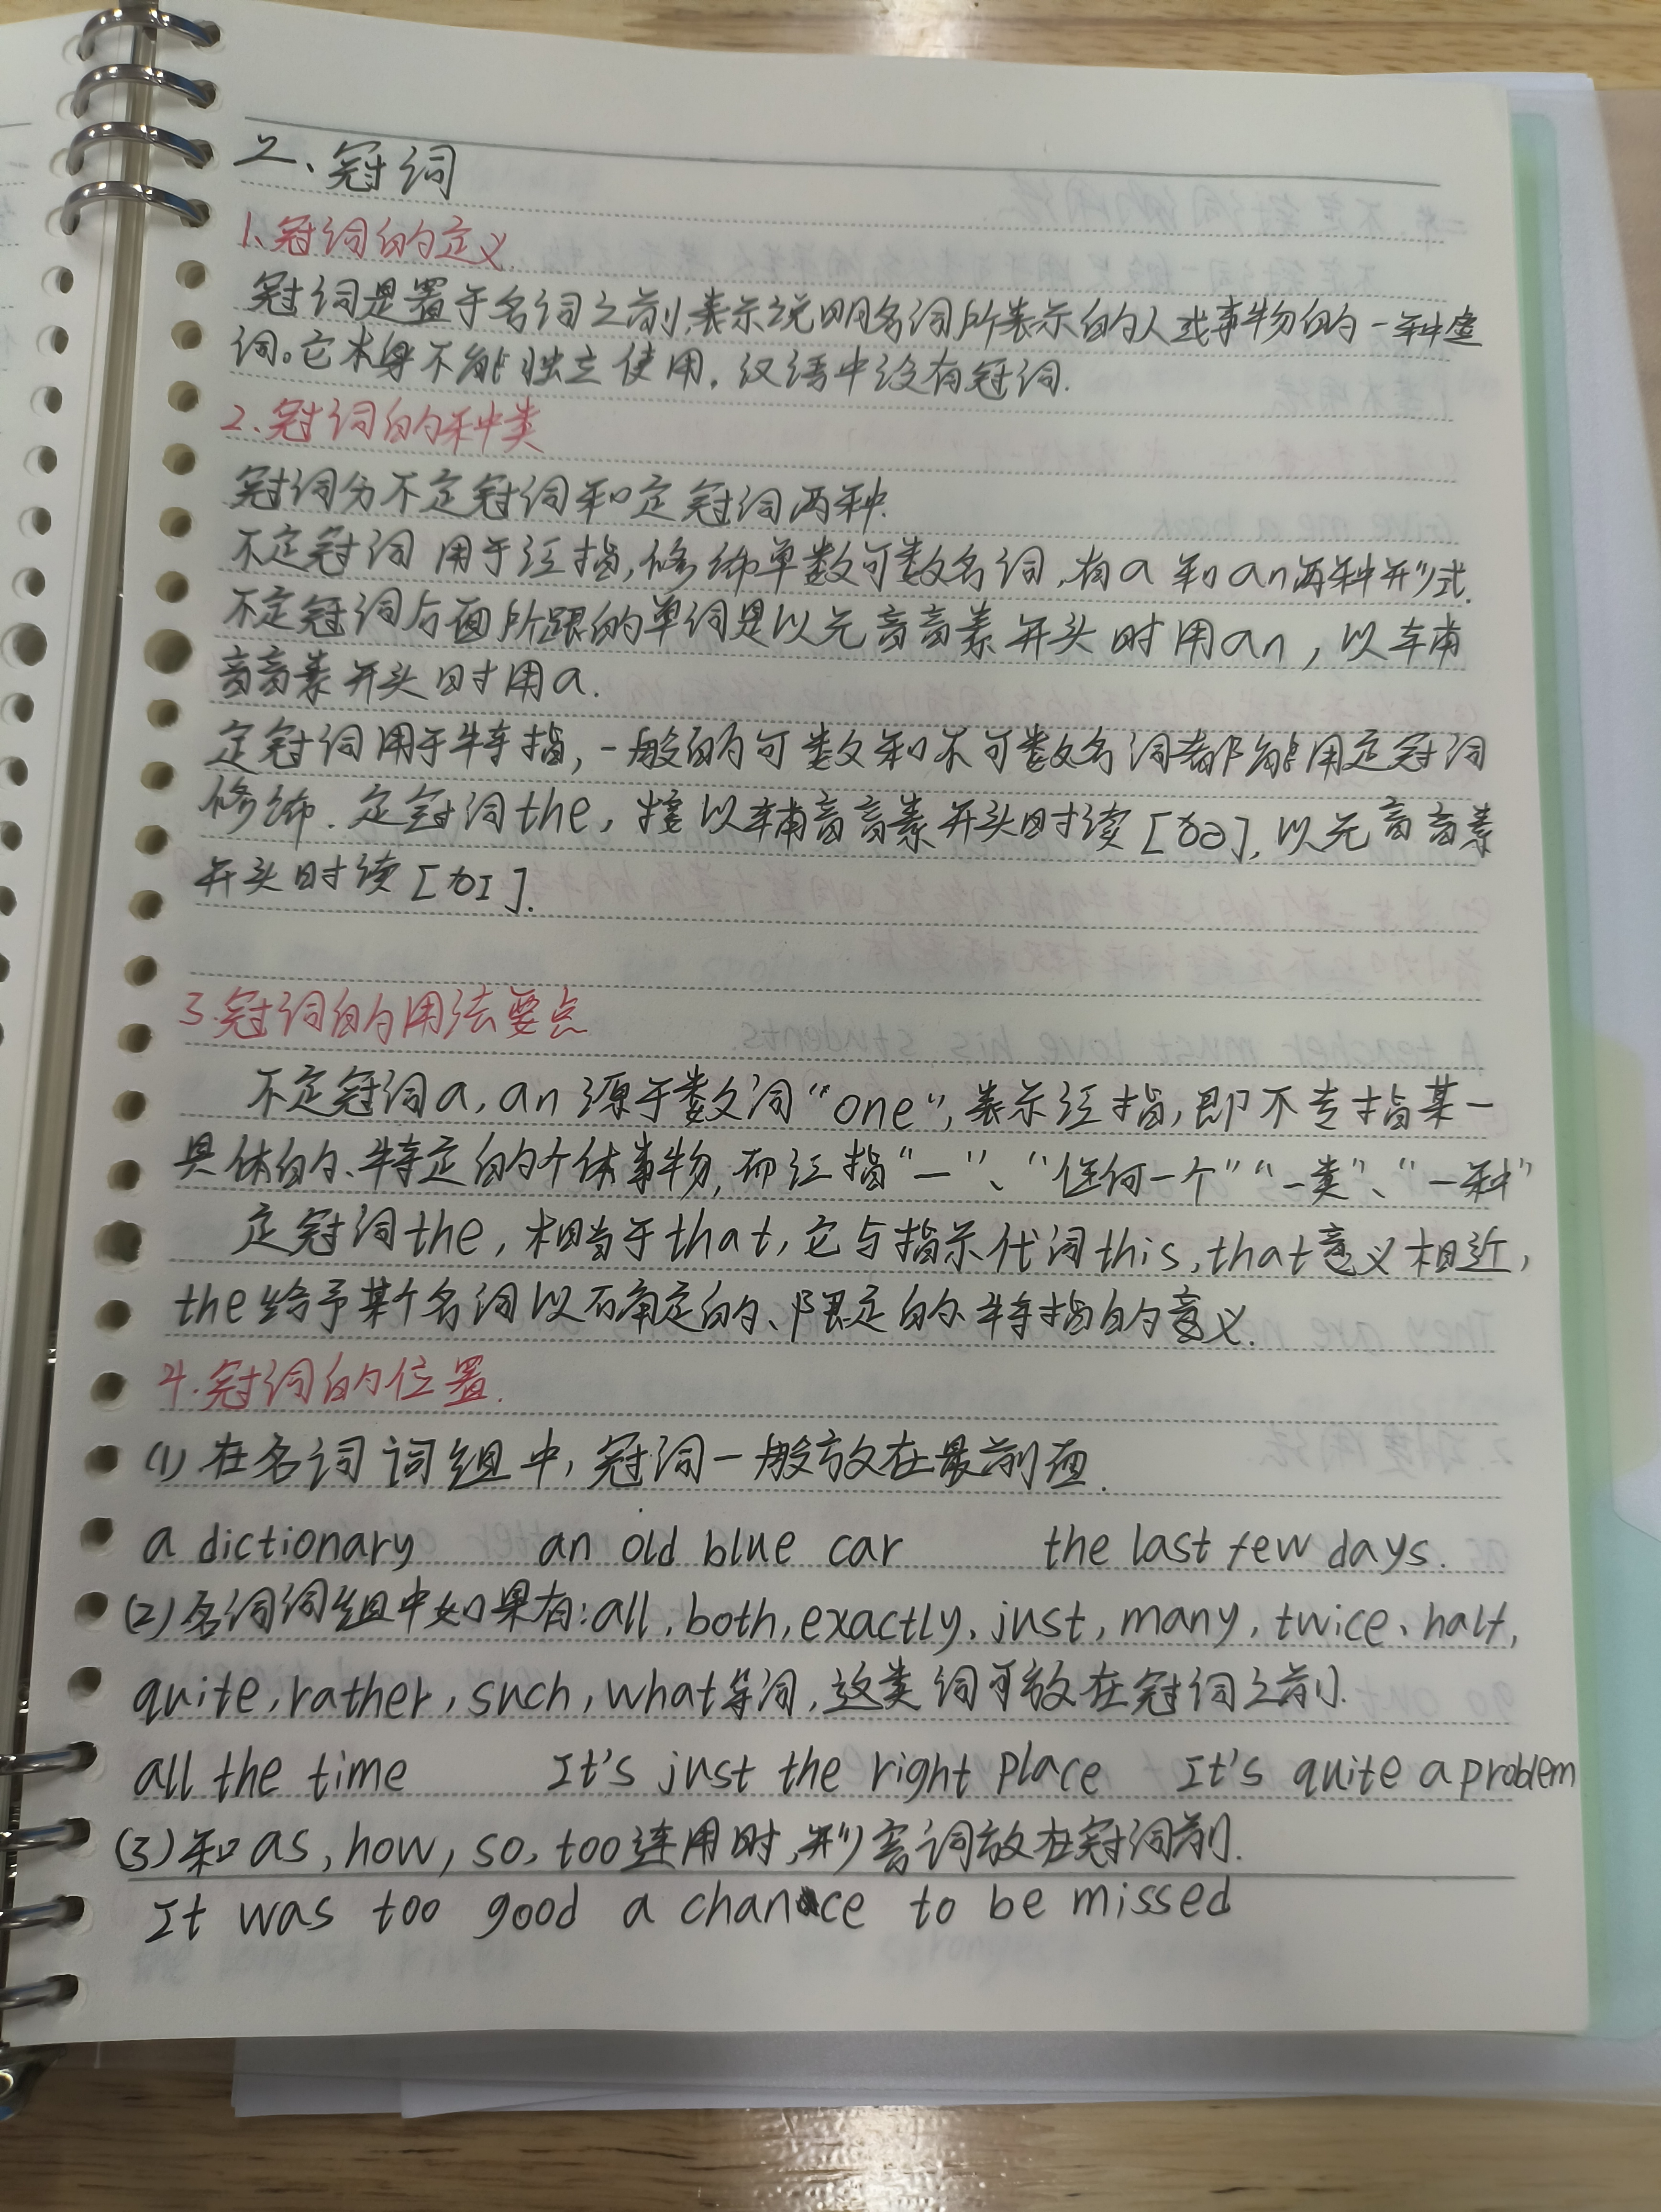 二、冠词
1、冠词的定义
冠词是置于名词之前,表示说明名词所表示的人或事物的一种虚
词。它本身不能独立使用,汉语中没有冠词.
2.冠词的种类
冠词分不定冠词和定冠词两种.
不定冠词 用于泛指,修饰单数可数名词,有a 和 an两种形式.
不定冠词后面所跟的单词是以元音音素开头时用an,以辅
音音素开头时用a.
定冠词用于特指,一般的可数和不可数名词都能用定冠词
修饰.定冠词the,接以辅音音素开头时读[ðə],以元音音素
开头时读[ðɪ].
3.冠词的用法要点
不定冠词a,an源于数词“one”,表示泛指,即不专指某一
具体的、特定的个体事物,而泛指“一”、“任何一个”“一类”、“一种”
定冠词the,相当于that,它与指示代词this,that意义相近,
the给予某个名词以确定的、限定的、特指的意义.
4.冠词的位置.
(1)在名词词组中,冠词一般放在最前面.
a dictionary an old blue car the last few days.
(2)名词词组中如果有:all,both,exactly、just,many,twice、half,
quite,rather,such,what等词,这类词可放在冠词之前.
all the time It's just the right place It's quite a problem
(3)和as,how,so,too连用时,形容词放在冠词前.
It was too good a chance to be missed